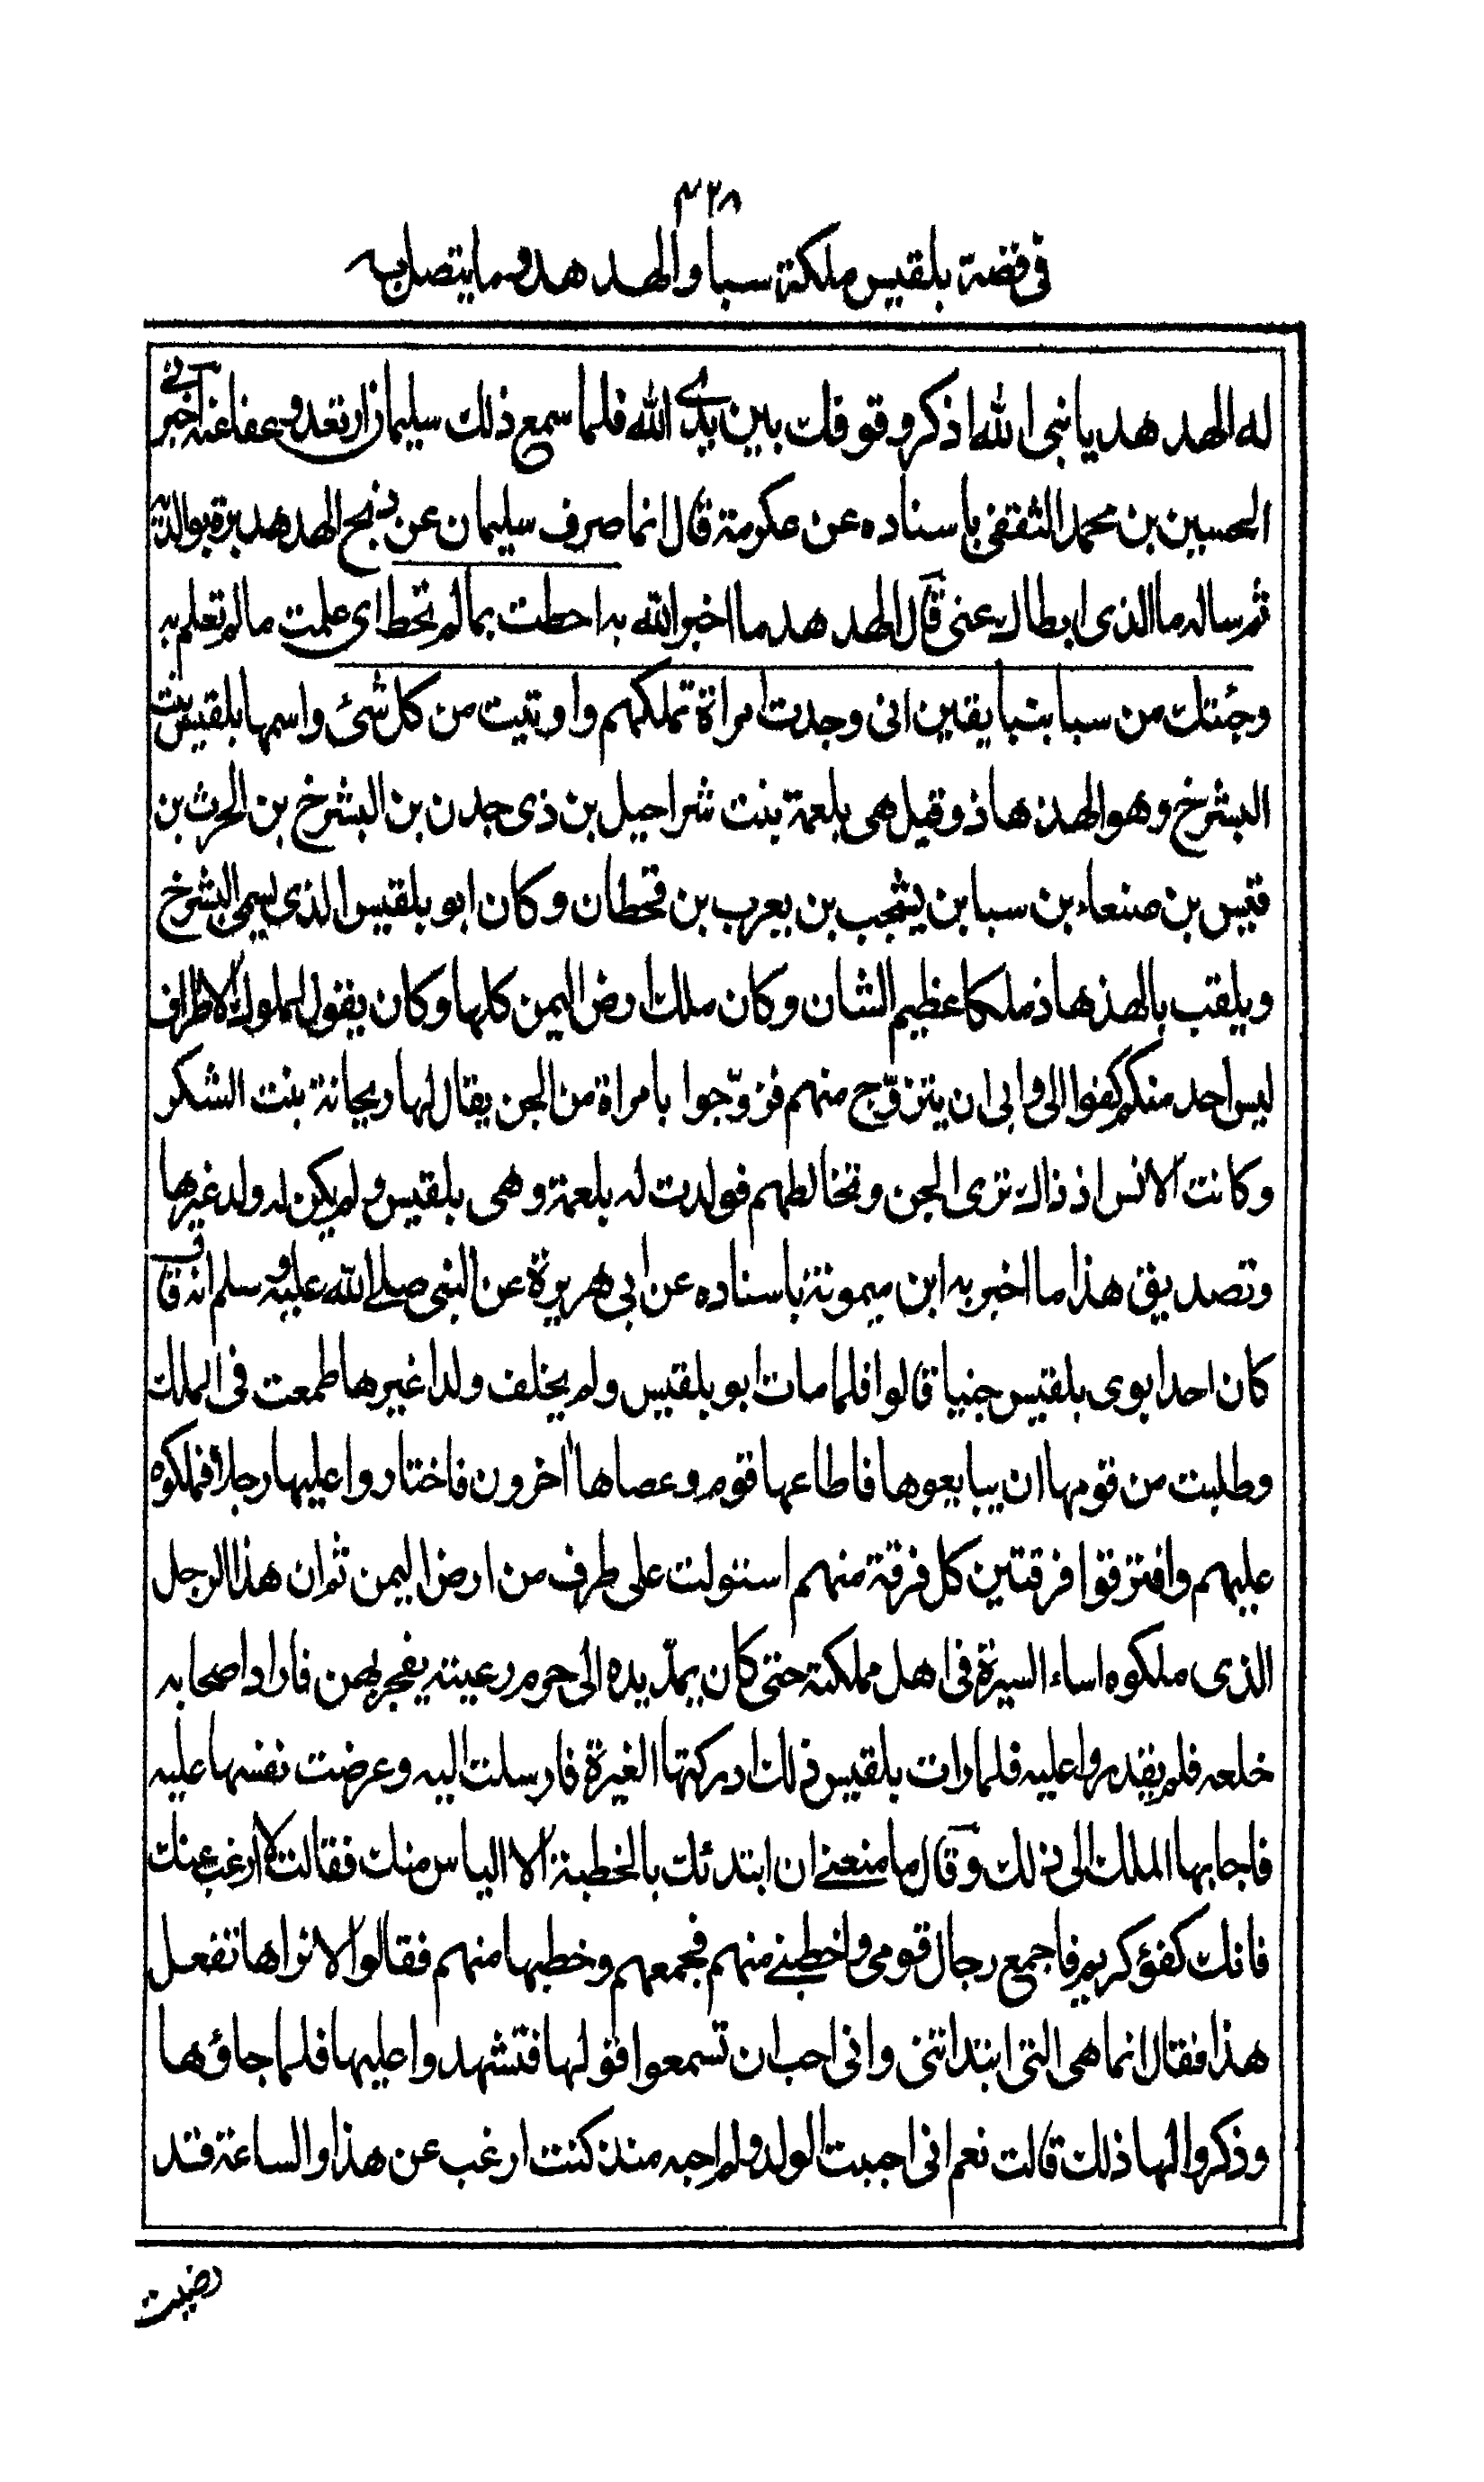 ٣٢٨
فى قصة بلقيس ملكة سبا والهدهد وما يتصل به
له الهدهد يا نبى الله اذكر وقوفك بين يدى الله فلما سمع ذلك سليمان ارتعد وعفا عنه اخبرنى
الحسين بن محمد الثقفى باسناده عن عكرمة قال انما صرف سليمان عن ذبح الهدهد بره بوالديه
ثم ساله ما الذى ابطاك عنى قال الهدهد ما اخبر الله به احطت بما لم تحط اى علمت ما لم تعلم به
وجئتك من سبا بنبا يقين انى وجدت امراة تملكهم واوتيت من كل شئ واسمها بلقيس بنت
البشرخ وهو الهذهاذ وقيل هى بلعمة بنت شراحيل بن ذى جدن بن البشرخ بن الحرث بن
قيس بن صنعاء بن سبا بن يشجب بن يعرب بن قحطان وكان ابو بلقيس الذى يسمى البشرخ
ويلقب بالهذهاذ ملكا عظيم الشان وكان ملك ارض اليمن كلها وكان يقول لملوك الاطراف
ليس احد منكم كفوا لى وابى ان يتزوج منهم فزوّجوا بامراة من الجن يقال لها ريحانة بنت الشكر
وكانت الانس اذ ذاك ترى الجن وتخالطهم فولدت له بلعمة وهى بلقيس ولم يكن له ولد غيرها
وتصديق هذا ما اخبر به ابن ميمونة باسناده عن ابى هريرة عن النبى صلى الله عليه وسلم انه قال
كان احد ابوى بلقيس جنيا قالوا فلما مات ابو بلقيس ولم يخلف ولدا غيرها طمعت فى الملك
وطلبت من قومها ان يبايعوها فاطاعها قوم وعصاها اخرون فاختاروا عليها رجلا فملكوه
عليهم وافترقوا فرقتين كل فرقة منهم استولت على طرف من ارض اليمن ثم ان هذا الرجل
الذى ملكوه اساء السيرة فى اهل مملكته حتى كان يمدّ يده الى حرم رعيته يفجر بهن فاراد اصحابه
خلعه فلم يقدروا عليه فلما رات بلقيس ذلك ادركتها الغيرة فارسلت اليه وعرضت نفسها عليه
فاجابها الملك الى ذلك وقال ما منعنى ان ابتدئك بالخطبة الا الياس منك فقالت لا ارغب عنك
فانك كفؤ كريم فاجمع رجال قومى واخطبنى منهم فجمعهم وخطبها منهم فقالوا لا نراها تفعل
هذا فقال انما هى التى ابتداتنى وانى احب ان تسمعوا قولها فتشهدوا عليها فلما جاؤها
وذكروا لها ذلك قالت نعم انى احببت الولد ولم اجبه منذ كنت ارغب عن هذا والساعة قد
رضيت